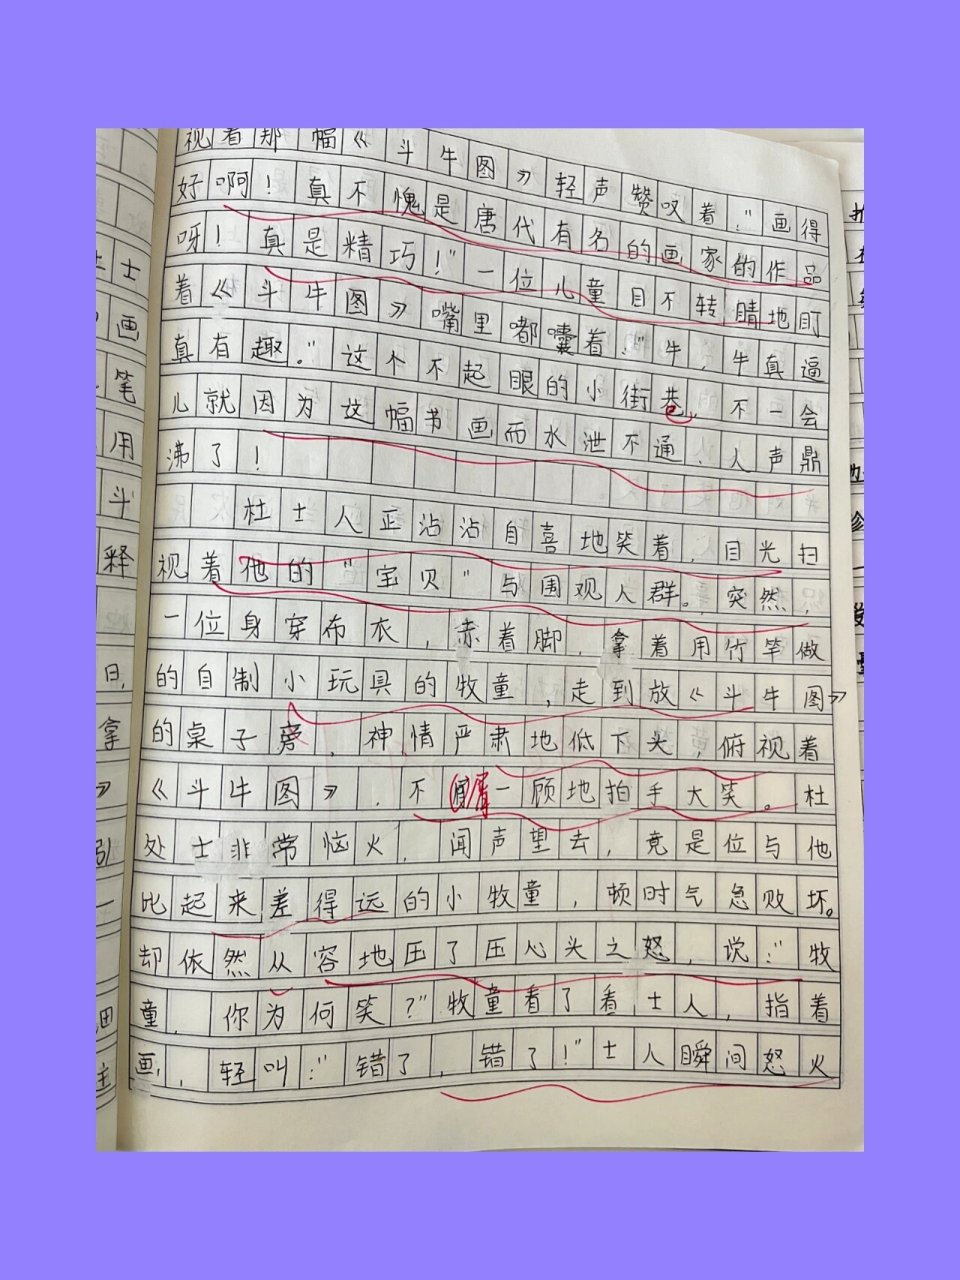 视着那幅《斗牛图》轻声赞叹着："画得
好啊！真不愧是唐代有名的画家的作品
呀！真是精巧！"一位儿童目不转睛地盯
着《斗牛图》嘴里嘟囔着："牛，牛真逼
真有趣。"这个不起眼的小街巷，不一会
儿就因为这幅书画而水泄不通、人声鼎
沸了！
杜士人正沾沾自喜地笑着，目光扫
视着他的"宝贝"与围观人群。突然，
一位身穿布衣，赤着脚，拿着用竹竿做
的自制小玩具的牧童，走到放《斗牛图》
的桌子旁，神情严肃地低下头，俯视着
《斗牛图》，不屑一顾地拍手大笑。杜
处士非常恼火，闻声望去，竟是位与他
比起来差得远的小牧童，顿时气急败坏。
却依然从容地压了压心头之怒，说："牧
童，你为何笑？"牧童看了看士人，指着
画，轻叫："错了，错了！"士人瞬间怒火
士
画
笔
用
斗
释
日，
拿
》
引
一
细
主